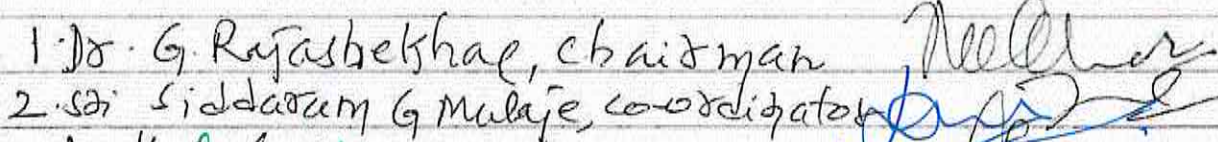 1. Dr. G. Rajashekhar, Chairman
2. Sri Siddaram G Malaje, co-ordinator